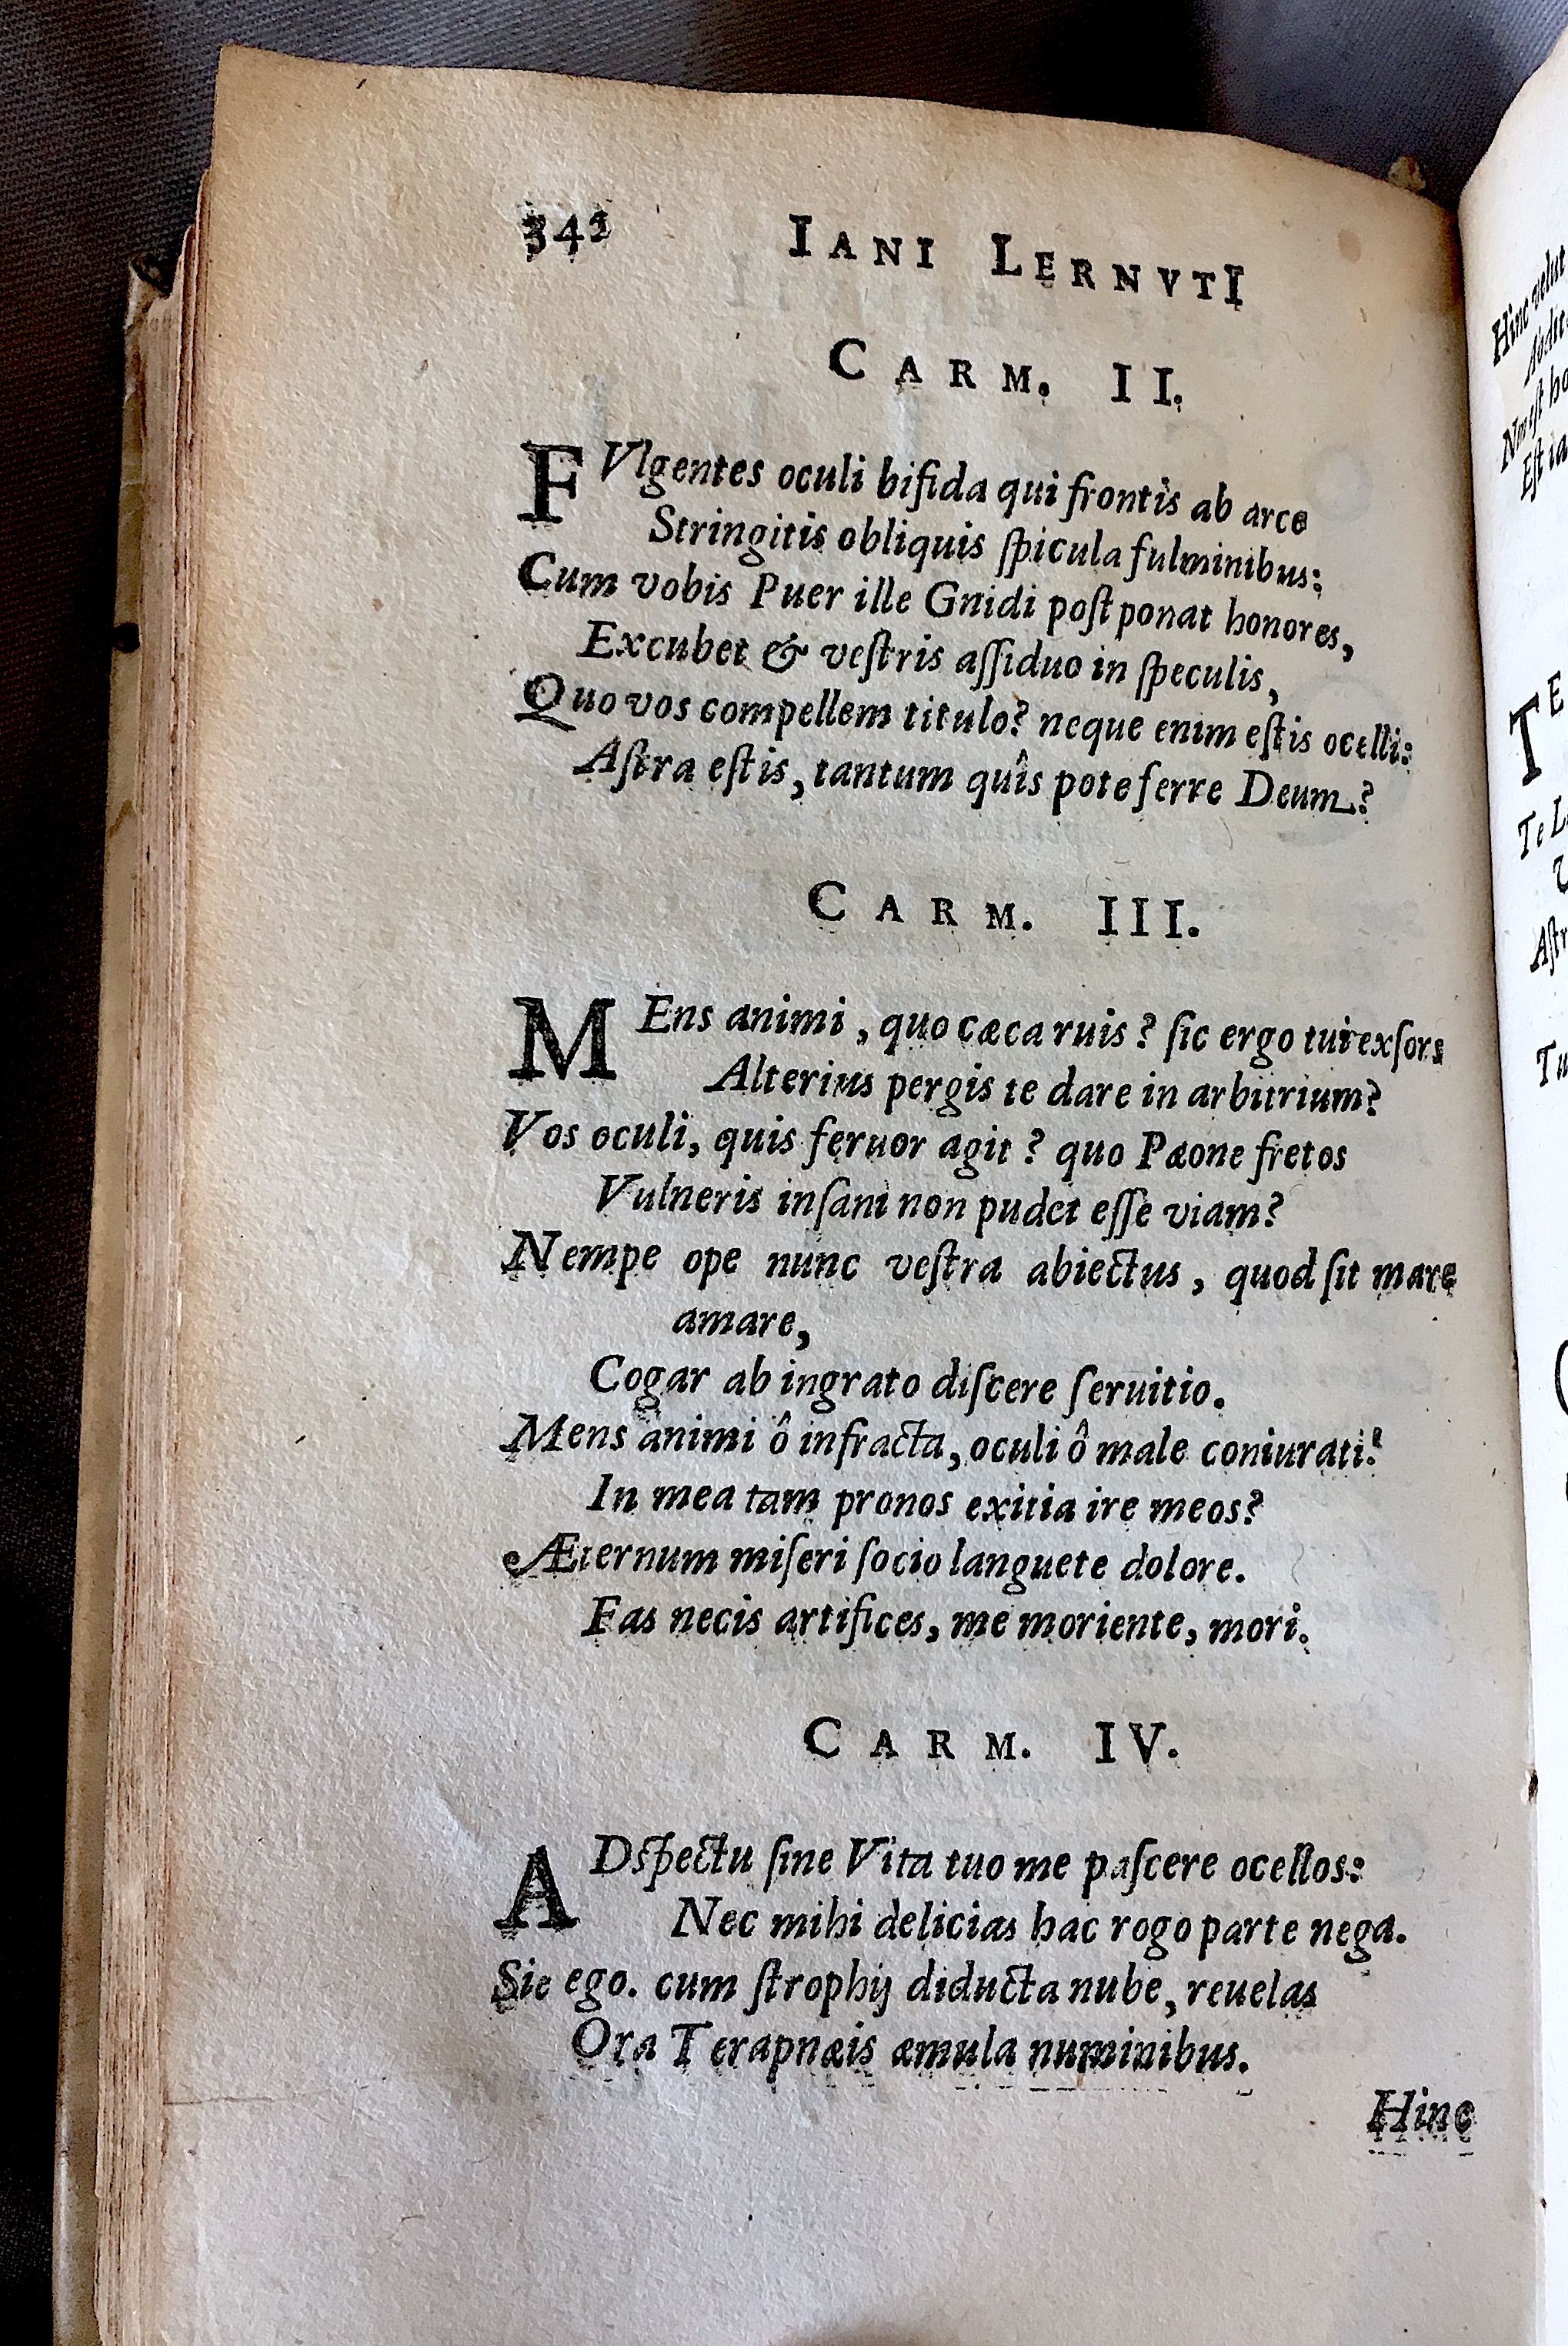 342 IANI LERNVTI
CARM. II.
FVlgentes oculi bifida qui frontis ab arce
Stringitis obliquis ſpicula fulminibus:
Cum vobis Puer ille Gnidi poſtponat honores,
Excubet & veſtris aſſiduo in ſpeculis,
Quo vos compellem titulo? neque enim eſtis ocelli:
Aſtra eſtis, tantum quîs pote ferre Deum?
CARM. III.
MEns animi, quo cæca ruis? ſic ergo tui exſors
Alterius pergis te dare in arbitrium?
Vos oculi, quis feruor agit? quo Pæone fretos
Vulneris inſani non pudet eſſe viam?
Nempe ope nunc veſtra abiectus, quod ſit mare
amare,
Cogar ab ingrato diſcere ſeruitio.
Mens animi ô infracta, oculi ô male coniurati!
In mea tam pronos exitia ire meos?
Æternum miſeri ſocio languete dolore.
Fas necis artifices, me moriente, mori.
CARM. IV.
ADſpectu ſine Vita tuo me paſcere ocellos:
Nec mihi delicias hac rogo parte nega.
Sic ego. cum ſtrophij diducta nube, reuelas
Ora Terapnæis æmula numinibus.
Hinc
Hinc velut
Nm eſt
Eſt
TE
Te
Aſtr